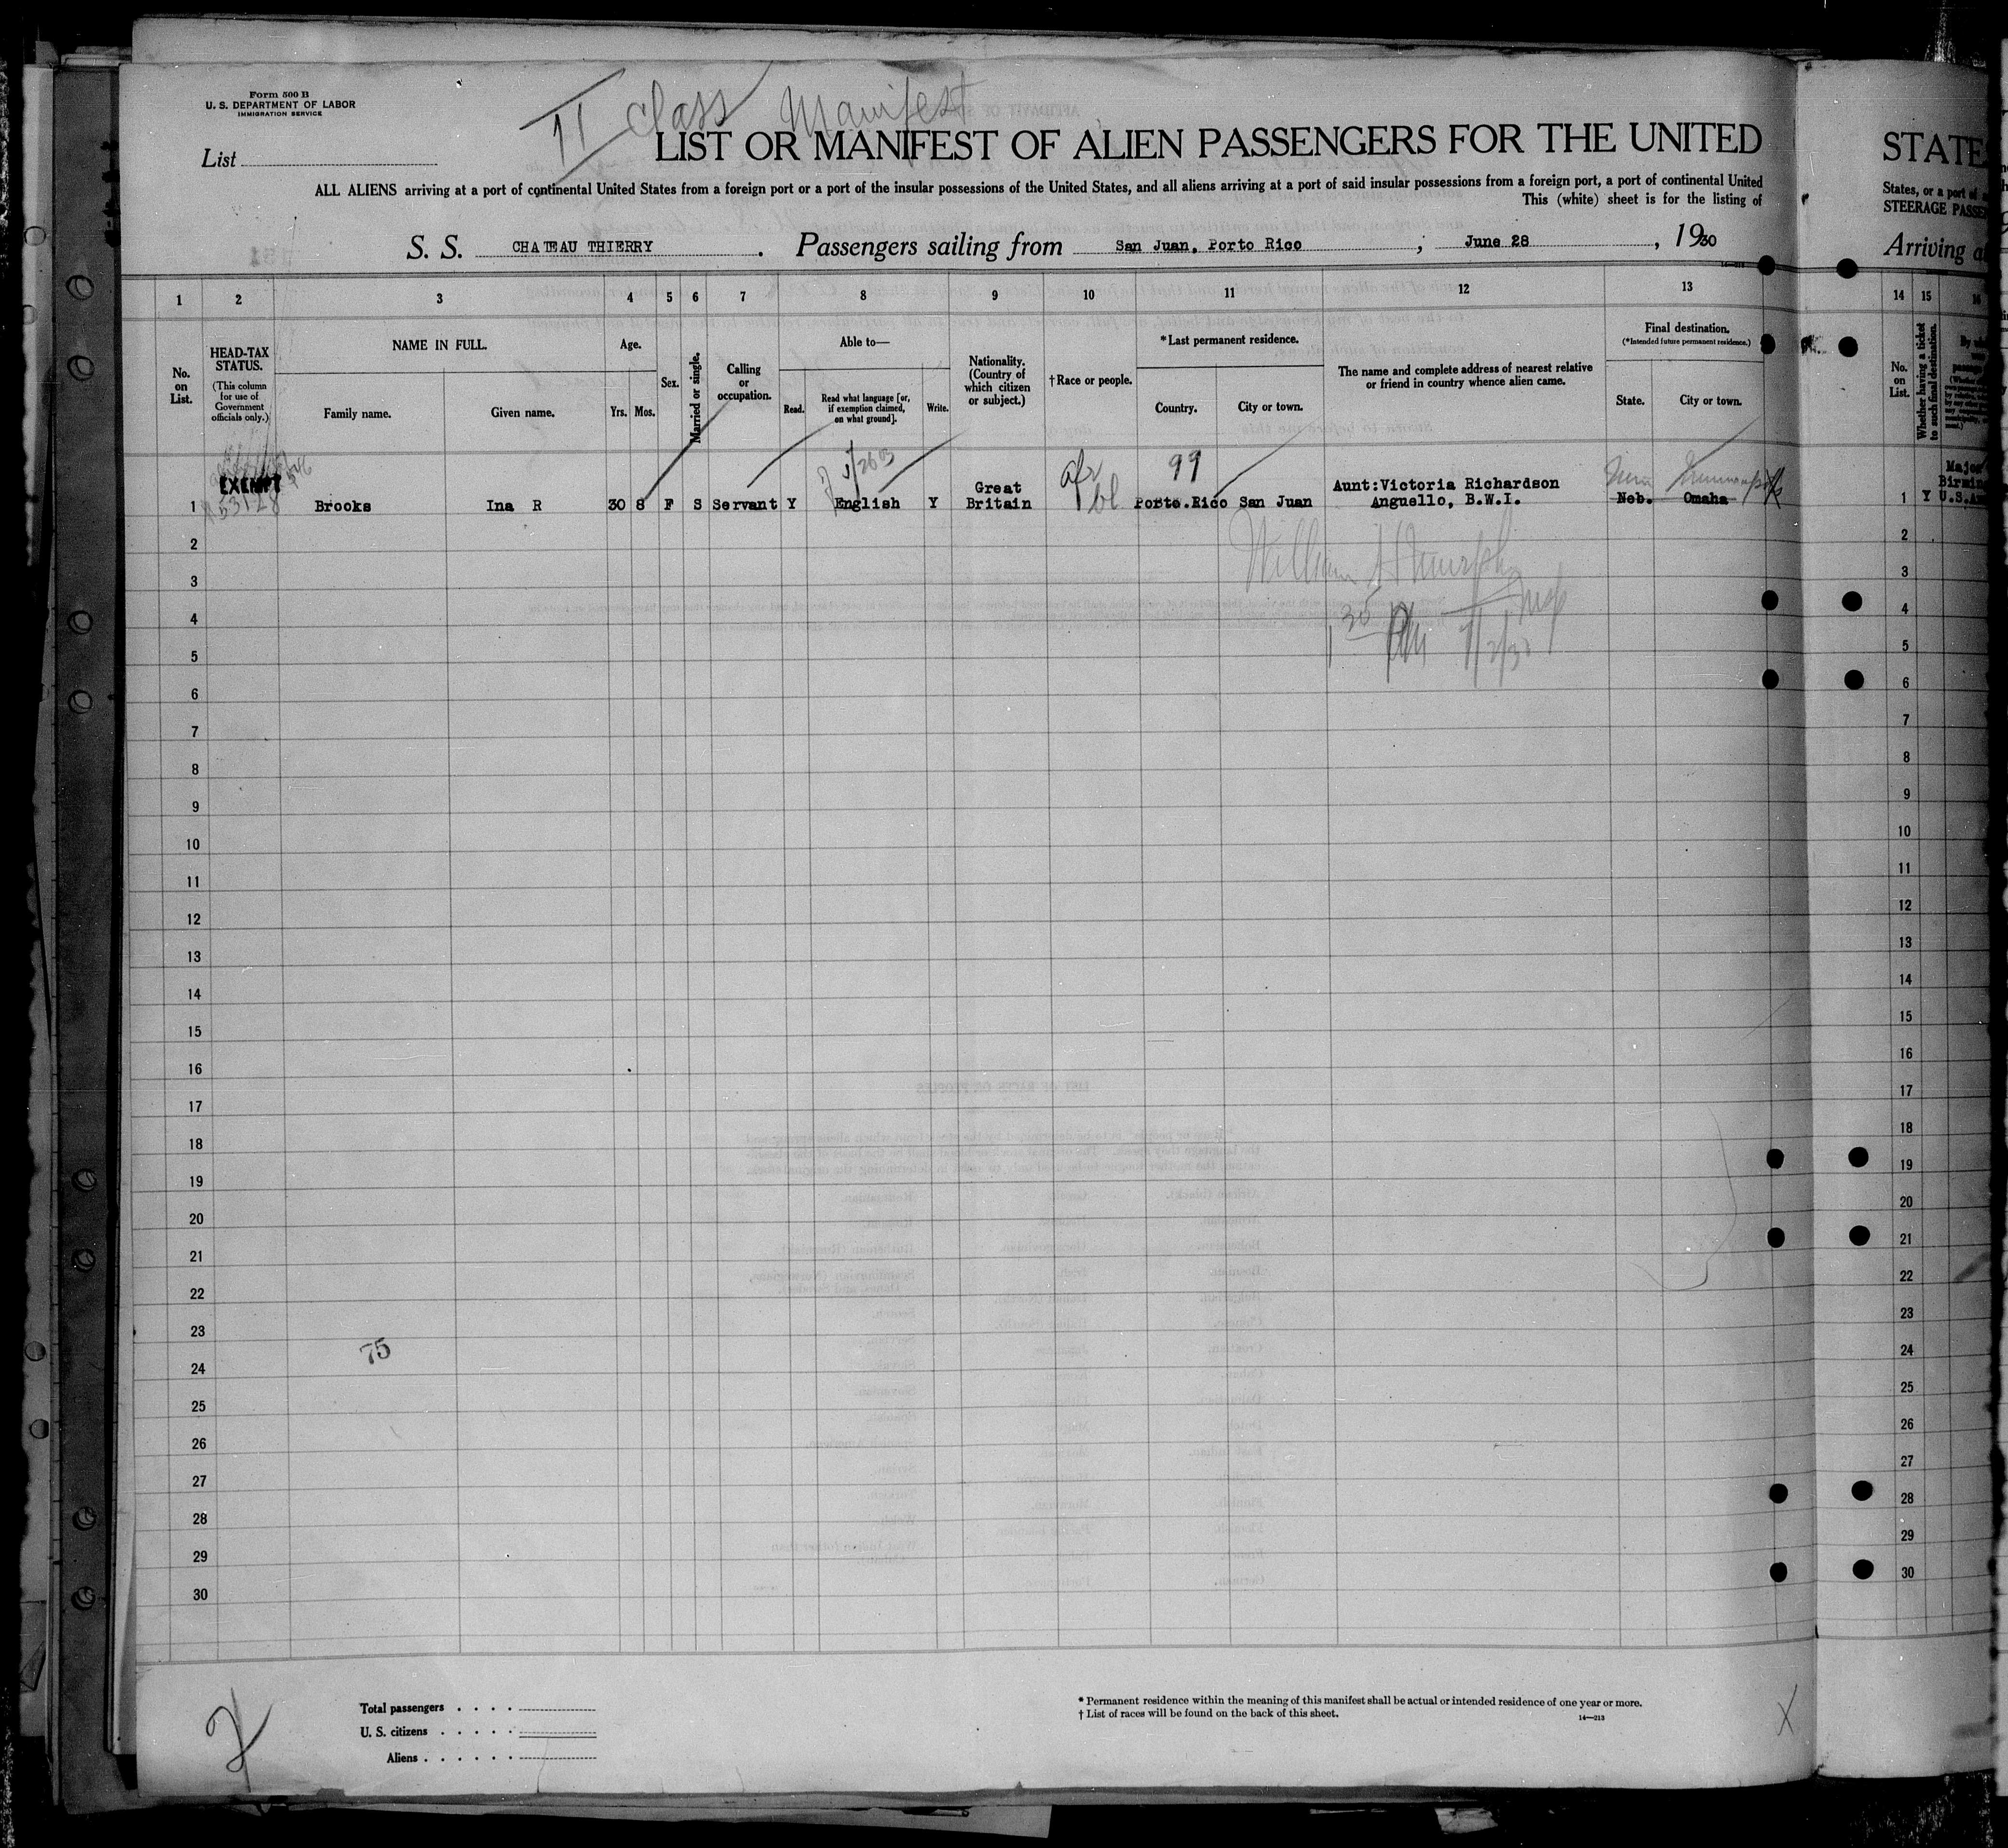 Form 500 B
U. S. DEPARTMENT OF LABOR
IMMIGRATION SERVICE
II Class Manifest
List
LIST OR MANIFEST OF ALIEN PASSENGERS FOR THE UNITED
STATE
ALL ALIENS arriving at a port of continental United States from a foreign port or a port of the insular possessions of the United States, and all aliens arriving at a port of said insular possessions from a foreign port, a port of continental United
States, or a port of
This (white) sheet is for the listing of
STEERAGE PASSE
S. S. CHATEAU THIERRY. Passengers sailing from San Juan, Porto Rico ; June 28 , 1930
Arriving a
1 2 3 4 5 6 7 8 9 10 11 12 13 14 15 16
No. on List.
HEAD-TAX STATUS.
(This column for use of Government officials only.)
NAME IN FULL.
Family name.
Given name.
Age.
Yrs.
Mos.
Sex.
Married or single.
Calling or occupation.
Able to—
Read.
Read what language [or, if exemption claimed, on what ground].
Write.
Nationality. (Country of which citizen or subject.)
† Race or people.
* Last permanent residence.
Country.
City or town.
The name and complete address of nearest relative or friend in country whence alien came.
Final destination.
(*Intended future permanent residence.)
State.
City or town.
No. on List.
Whether having a ticket to such final destination.
EXEMPT
99
1 Brooks Ina R 30 8 F S Servant Y English Y Great Britain Afr bl Porto.Rico San Juan Aunt:Victoria Richardson Anguello, B.W.I. Neb. Omaha
1 Y Major Birmin U.S.A
William H Murphy
1 30 PM 7/2/30
2 2
3 3
4 4
5 5
6 6
7 7
8 8
9 9
10 10
11 11
12 12
13 13
14 14
15 15
16 16
17 17
18 18
19 19
20 20
21 21
22 22
23 23
75
24 24
25 25
26 26
27 27
28 28
29 29
30 30
Total passengers . . . .
U. S. citizens . . . . .
Aliens . . . . . .
* Permanent residence within the meaning of this manifest shall be actual or intended residence of one year or more.
† List of races will be found on the back of this sheet.
14—213
X